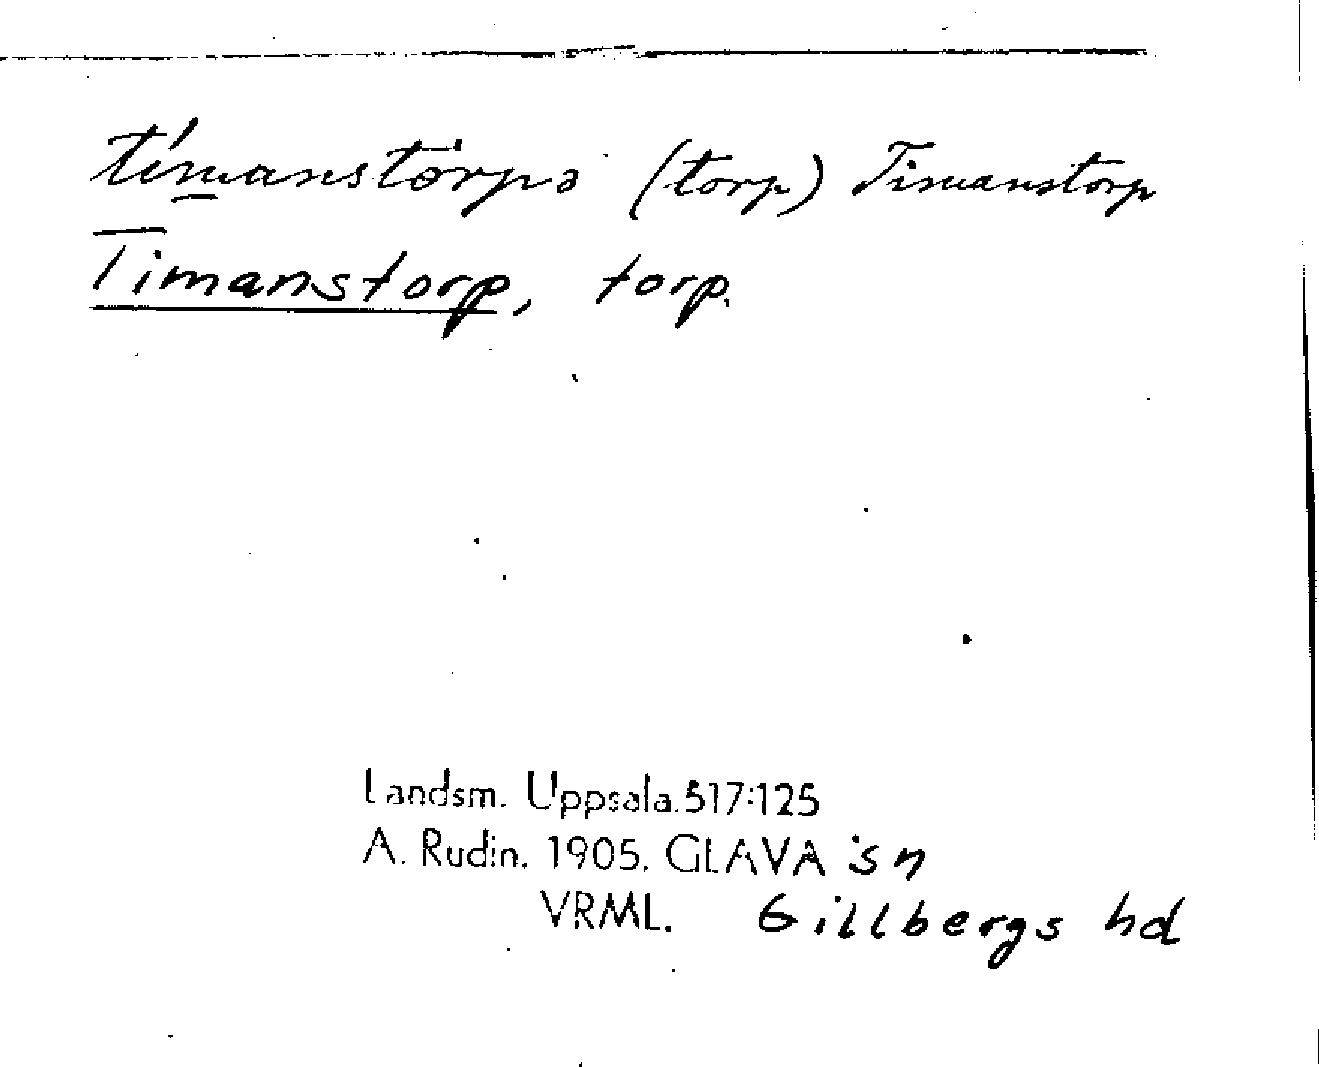 tímanstörpə (torp) Timanstorp
Timanstorp, torp.
Landsm. Uppsala.517:125
A. Rudin. 1905. GLAVA sn
VRML. Gillbergs hd